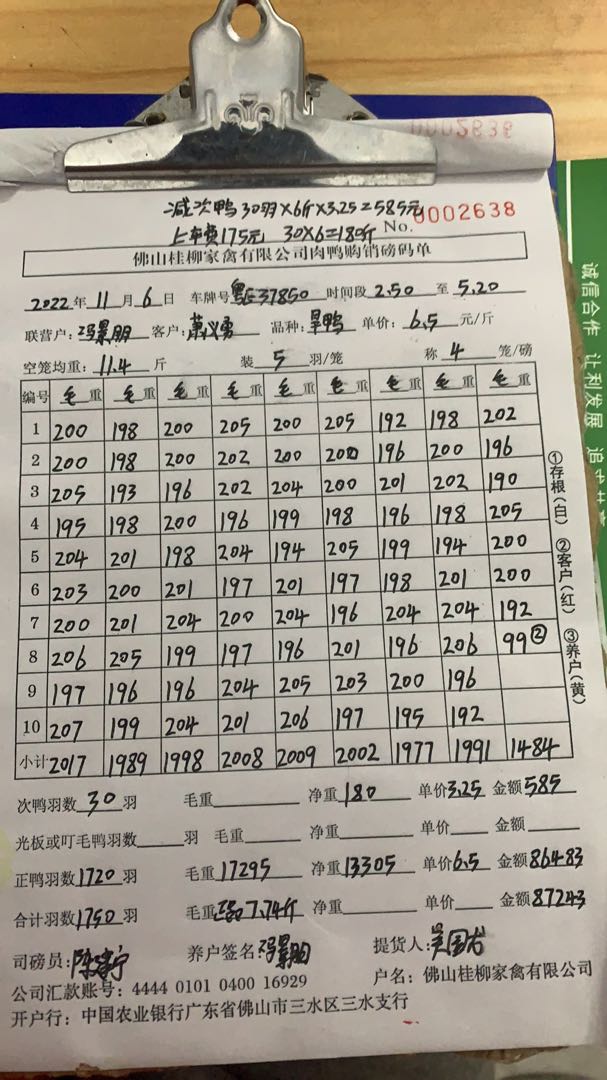 0002638
减次鸭30羽×6斤×3.25=585元
上车费175元 30×6=180斤 No. 0002638
佛山桂柳家禽有限公司肉鸭购销磅码单
2022年11月6日 车牌号37850 时间段2.50至5.20
联营户:冯景朋 客户:萧义勇 品种:旱鸭 单价:6.5元/斤
空笼均重:11.4斤 装5羽/笼 称4笼/磅
编号 毛重 毛重 毛重 毛重 毛重 毛重 毛重 毛重 毛重
1 200 198 200 205 200 205 192 198 202
2 200 198 200 202 200 200 196 200 196
3 205 193 196 202 204 200 201 202 190
4 195 198 200 196 199 198 196 198 205
5 204 201 198 204 194 205 199 194 200
6 203 200 201 197 201 197 198 201 200
7 200 201 204 200 204 196 204 204 192
8 206 205 199 197 196 201 196 206 99②
9 197 196 196 204 205 203 200 196
10 207 199 204 201 206 197 195 192
小计 2017 1989 1998 2008 2009 2002 1977 1991 1484
次鸭羽数30羽 毛重 净重180 单价3.25 金额585
光板或叮毛鸭羽数 羽 毛重 净重 单价 金额
正鸭羽数1720羽 毛重17295 净重13305 单价6.5 金额86483
合计羽数1750羽 毛重 7.74斤 净重 单价 金额87243
司磅员: 养户签名:冯景朋 提货人:
公司汇款账号: 4444 0101 0400 16929 户名: 佛山桂柳家禽有限公司
开户行: 中国农业银行广东省佛山市三水区三水支行
①存根(白) ②客户(红) ③养户(黄)
诚信合作 让利发展